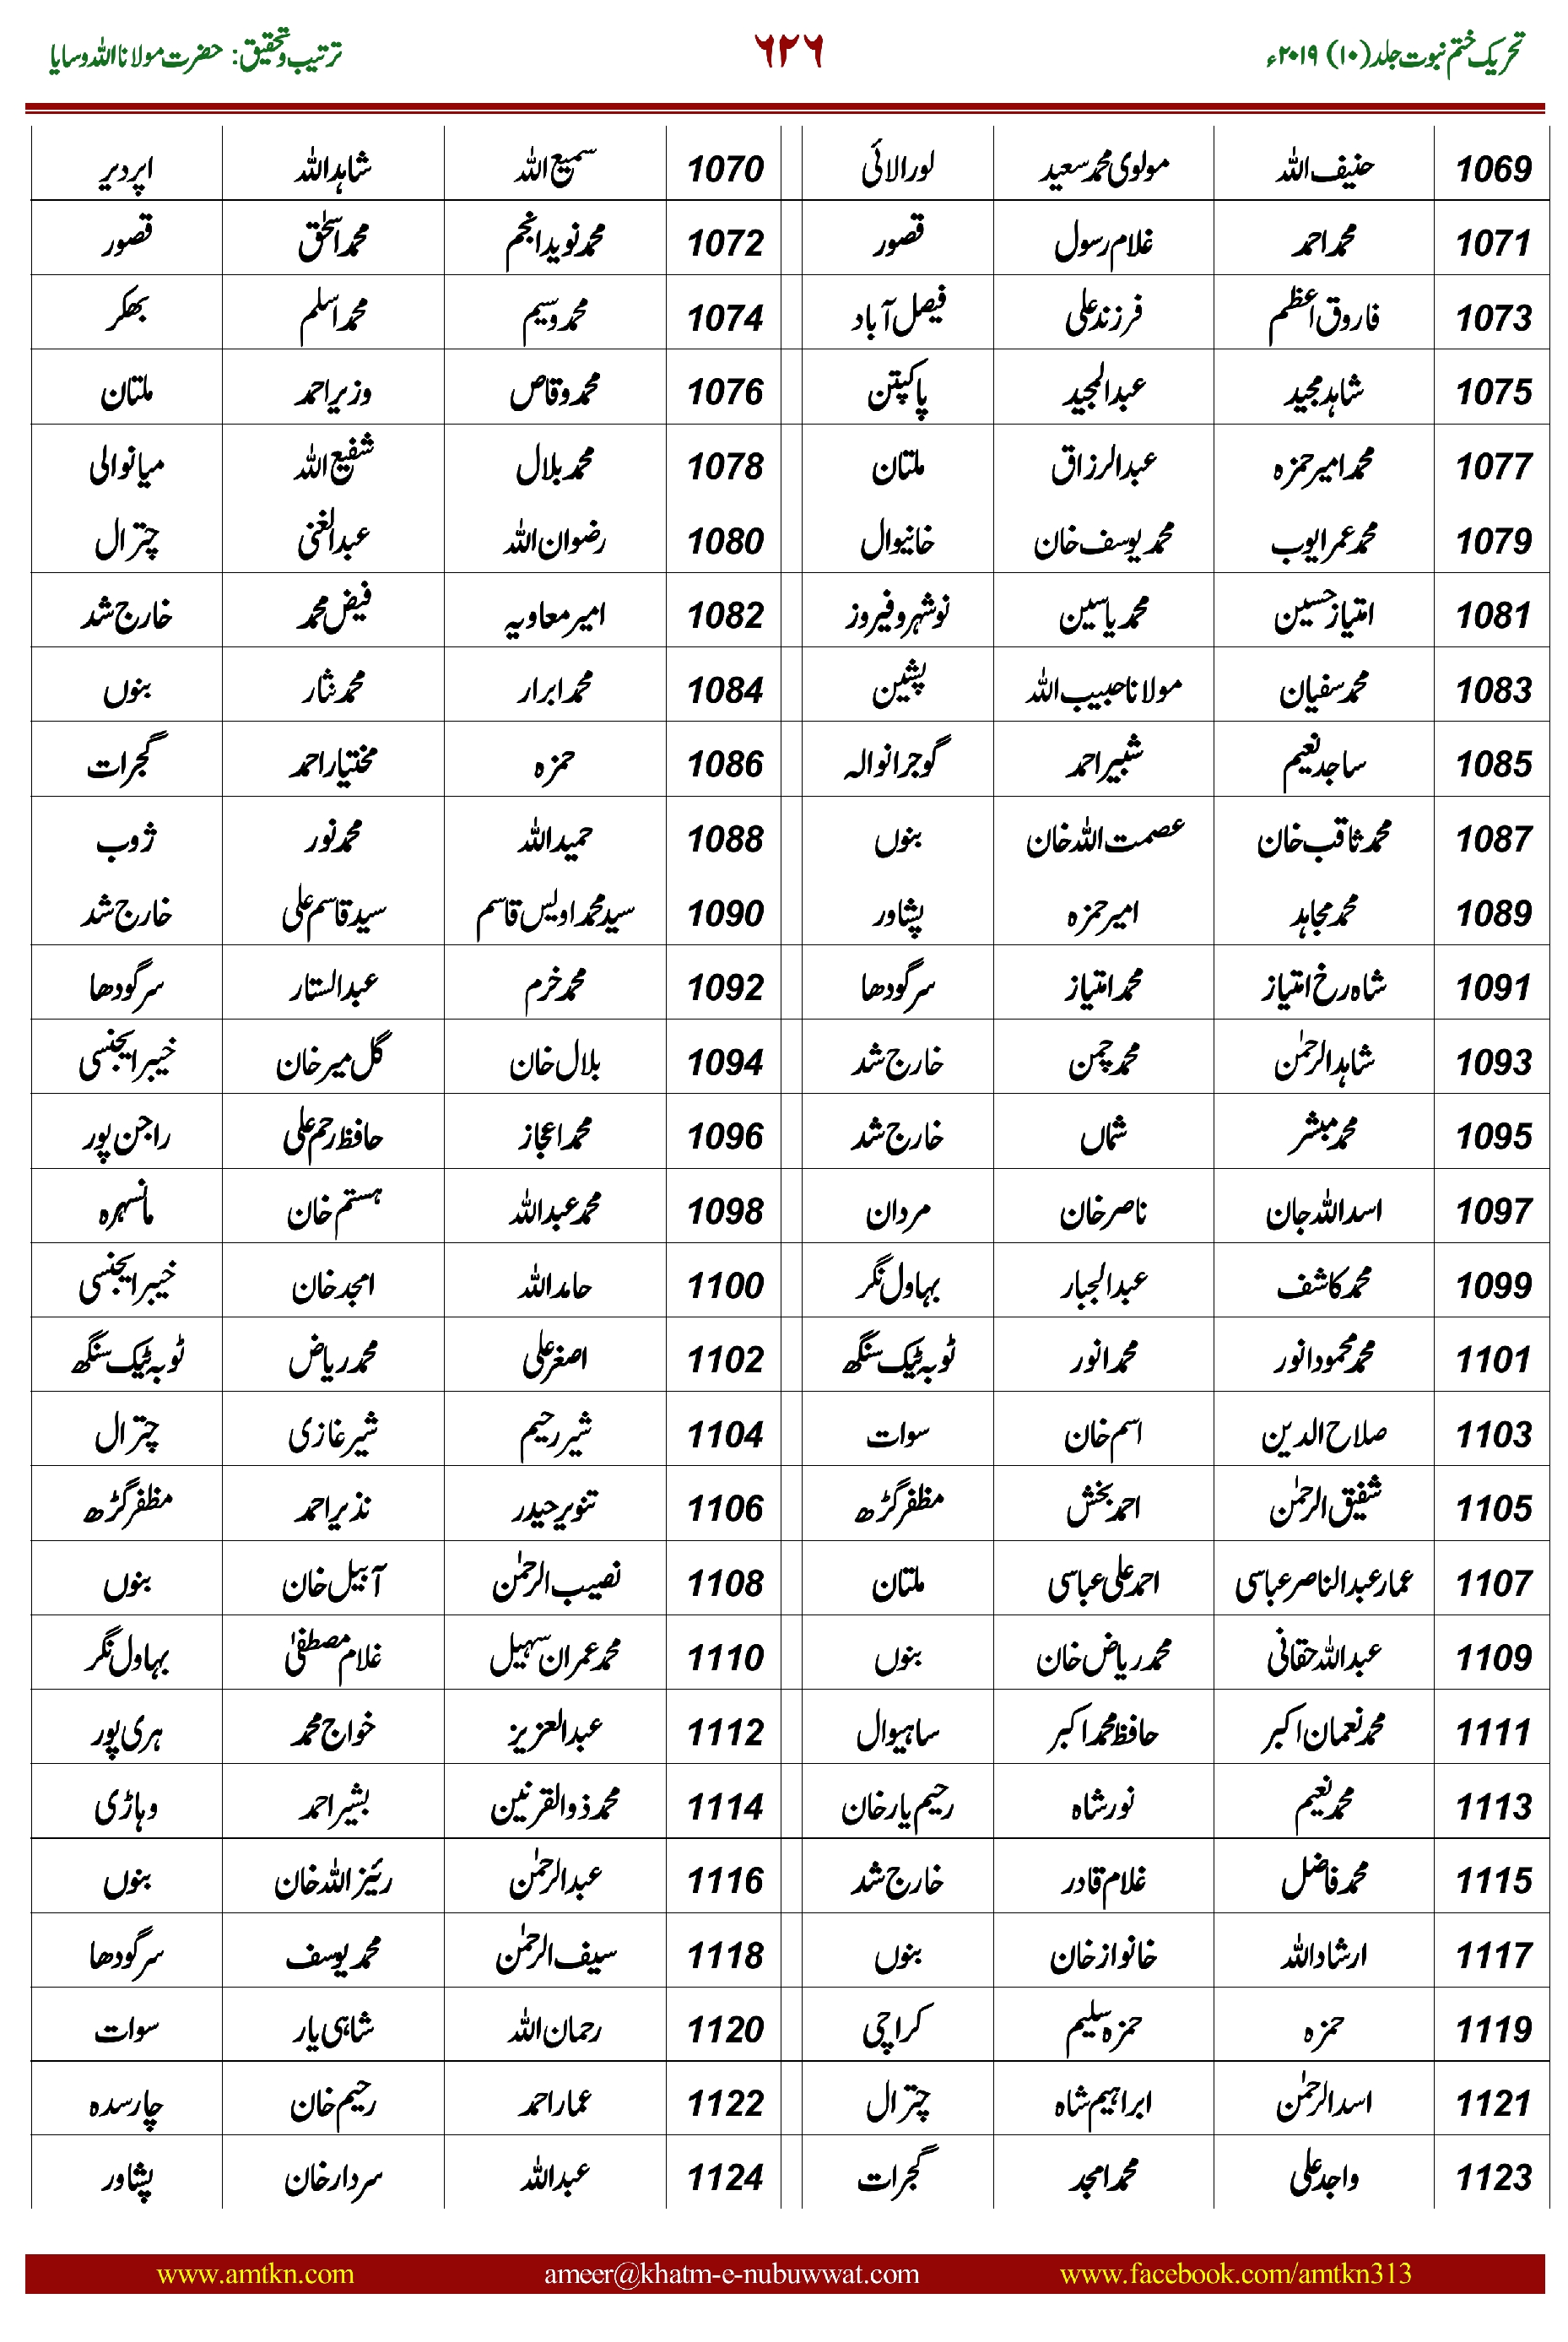 تحریک ختم نبوت جلد (۱۰) ۲۰۱۹ء ۶۲۶ ترتیب وتحقیق: حضرت مولانا اللہ وسایا
1069 حنیف اللہ مولوی محمد سعید لورالائی 1070 سمیع اللہ شاہد اللہ اپردیر
1071 محمد احمد غلام رسول قصور 1072 محمد نوید انجم محمد اسحٰق قصور
1073 فاروق اعظم فرزند علی فیصل آباد 1074 محمد وسیم محمد اسلم بھکر
1075 شاہد مجید عبدالمجید پاکپتن 1076 محمد وقاص وزیر احمد ملتان
1077 محمد امیر حمزہ عبدالرزاق ملتان 1078 محمد بلال شفیع اللہ میانوالی
1079 محمد عمر ایوب محمد یوسف خان خانیوال 1080 رضوان اللہ عبدالغنی چترال
1081 امتیاز حسین محمد یاسین نوشہروفیروز 1082 امیر معاویہ فیض محمد خارج شد
1083 محمد سفیان مولانا حبیب اللہ پشین 1084 محمد ابرار محمد نثار بنوں
1085 ساجد نعیم شبیر احمد گوجرانوالہ 1086 حمزہ مختیار احمد گجرات
1087 محمد ثاقب خان عصمت اللہ خان بنوں 1088 حمید اللہ محمد نور ژوب
1089 محمد مجاہد امیر حمزہ پشاور 1090 سید محمد اویس قاسم سید قاسم علی خارج شد
1091 شاہ رخ امتیاز محمد امتیاز سرگودھا 1092 محمد خرم عبدالستار سرگودھا
1093 شاہد الرحمٰن محمد چمن خارج شد 1094 بلال خان گل میر خان خیبر ایجنسی
1095 محمد مبشر شماں خارج شد 1096 محمد اعجاز حافظ رحم علی راجن پور
1097 اسد اللہ جان ناصر خان مردان 1098 محمد عبداللہ ہستم خان مانسہرہ
1099 محمد کاشف عبدالجبار بہاول نگر 1100 حامد اللہ امجد خان خیبر ایجنسی
1101 محمد محمود انور محمد انور ٹوبہ ٹیک سنگھ 1102 اصغر علی محمد ریاض ٹوبہ ٹیک سنگھ
1103 صلاح الدین اسم خان سوات 1104 شیر رحیم شیر غازی چترال
1105 شفیق الرحمٰن احمد بخش مظفر گڑھ 1106 تنویر حیدر نذیر احمد مظفر گڑھ
1107 عمار عبدالناصر عباسی احمد علی عباسی ملتان 1108 نصیب الرحمٰن آبیل خان بنوں
1109 عبداللہ حقانی محمد ریاض خان بنوں 1110 محمد عمران سہیل غلام مصطفیٰ بہاول نگر
1111 محمد نعمان اکبر حافظ محمد اکبر ساہیوال 1112 عبدالعزیز خواج محمد ہری پور
1113 محمد نعیم نور شاہ رحیم یار خان 1114 محمد ذوالقرنین بشیر احمد وہاڑی
1115 محمد فاضل غلام قادر خارج شد 1116 عبدالرحمٰن رئیز اللہ خان بنوں
1117 ارشاد اللہ خانواز خان بنوں 1118 سیف الرحمٰن محمد یوسف سرگودھا
1119 حمزہ حمزہ سلیم کراچی 1120 رحمان اللہ شاہی یار سوات
1121 اسد الرحمٰن ابراہیم شاہ چترال 1122 عمار احمد رحیم خان چارسدہ
1123 واجد علی محمد امجد گجرات 1124 عبداللہ سردار خان پشاور
www.amtkn.com ameer@khatm-e-nubuwwat.com www.facebook.com/amtkn313